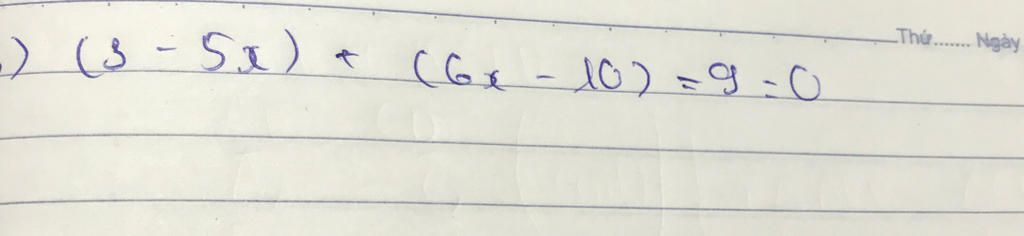 Thứ....... Ngày
.) (3 - 5x) + (6x - 10) = 9 = 0